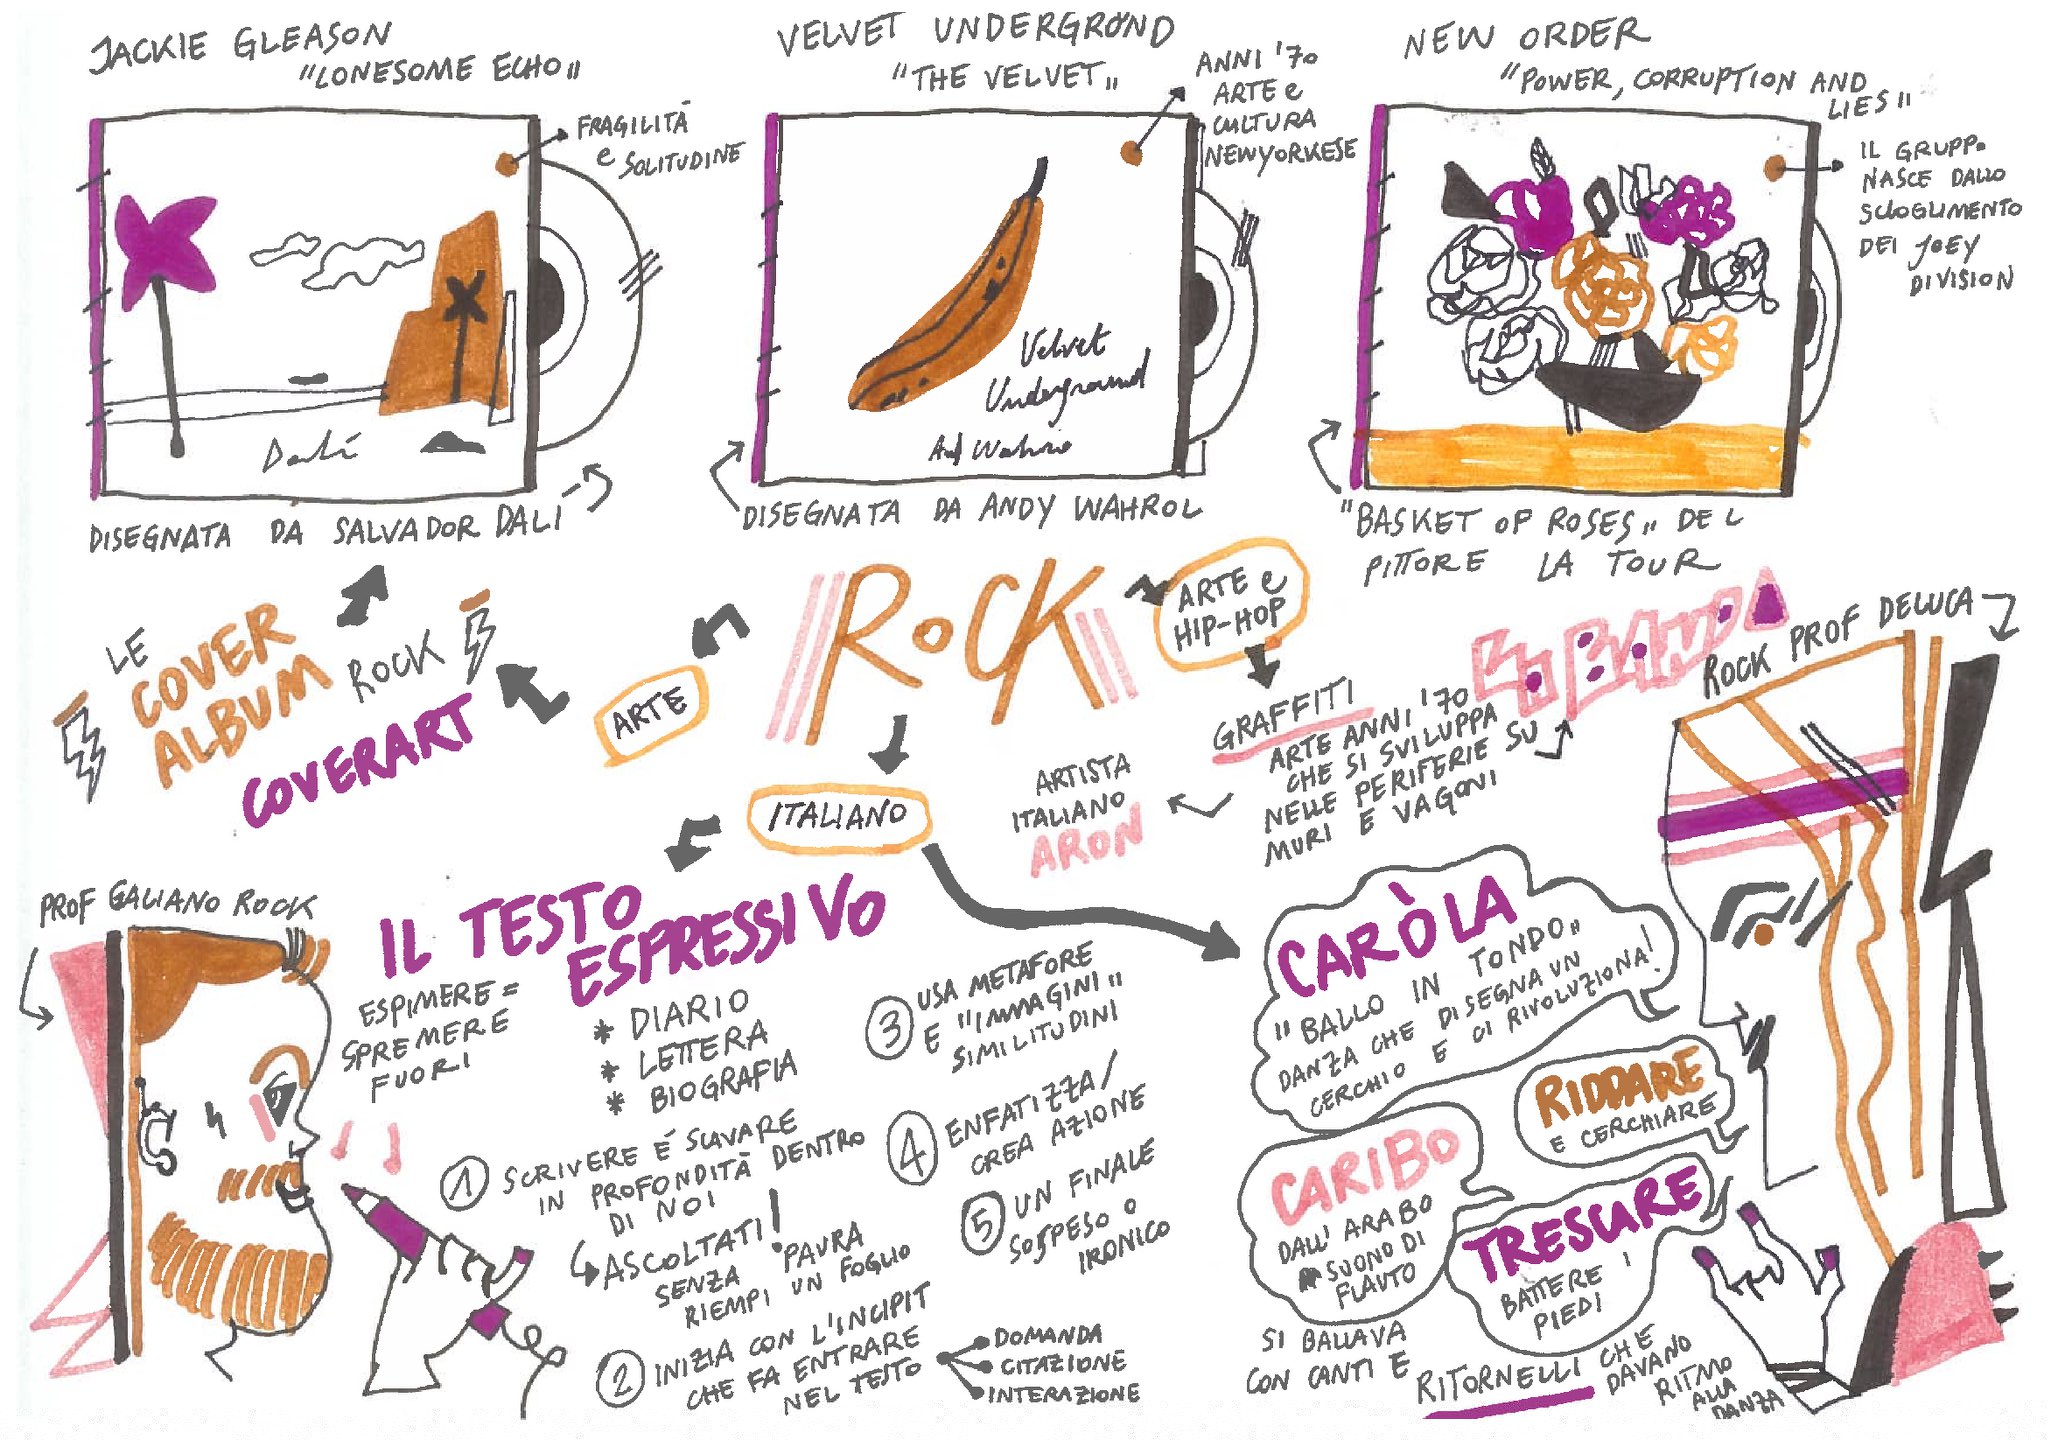 JACKIE GLEASON
"LONESOME ECHO"
FRAGILITÀ
e SOLITUDINE
Dalí
DISEGNATA DA SALVADOR DALI
VELVET UNDERGRØND
"THE VELVET"
ANNI '70
ARTE e
CULTURA
NEWYORKESE
Velvet
Underground
DISEGNATA DA ANDY WAHROL
NEW ORDER
"POWER, CORRUPTION AND
LIES"
IL GRUPPO
NASCE DALLO
SCIOGLIMENTO
DEI JOEY
DIVISION
"BASKET OF ROSES" DEL
PITTORE LA TOUR
LE
COVER
ALBUM
ROCK
COVERART
ARTE
ROCK
ARTE e
HIP-HOP
GRAFFITI
ARTE ANNI '70
CHE SI SVILUPPA
NELLE PERIFERIE SU
MURI E VAGONI
ARTISTA
ITALIANO
ARON
ROCK PROF DELUCA
ITALIANO
PROF GALIANO ROCK
IL TESTO
ESPRESSIVO
ESPIMERE =
SPREMERE
FUORI
* DIARIO
* LETTERA
* BIOGRAFIA
1 SCRIVERE É SCAVARE
IN PROFONDITÀ DENTRO
DI NOI
ASCOLTATI!
SENZA PAURA
RIEMPI UN FOGLIO
2 INIZIA CON L'INCIPIT
CHE FA ENTRARE
NEL TESTO
DOMANDA
CITAZIONE
INTERAZIONE
3 USA METAFORE
E "IMMAGINI"
SIMILITUDINI
4 ENFATIZZA/
CREA AZIONE
5 UN FINALE
SOSPESO O
IRONICO
CARÒLA
"BALLO IN TONDO"
DANZA CHE DISEGNA UN
CERCHIO E CI RIVOLUZIONA!
RIDDARE
E CERCHIARE
CARIBO
DALL'ARABO
SUONO DI
FLAUTO
TRESCARE
BATTERE I
PIEDI
SI BALLAVA
CON CANTI E
RITORNELLI CHE
DAVANO
RITMO
ALLA
DANZA